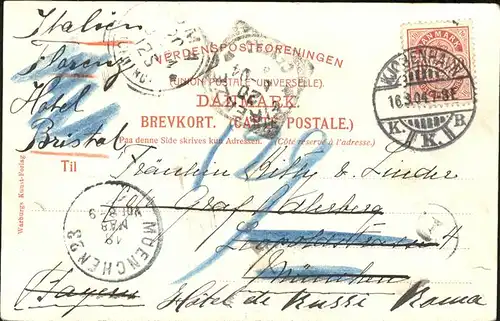 Italien
Florenz
Hotel
Bristol
VERDENSPOSTFORENINGEN
(UNION POSTALE UNIVERSELLE).
DANMARK.
BREVKORT. (CARTE POSTALE.)
Paa denne Side skrives kun Adressen. (Côté réservé à l'adresse.)
Til
Fräulein Kitty v. Linder
Graf
Leopoldstrasse 4
München
Bayern
Hôtel de Russi Roma
Warburgs Kunst-Forlag
DANMARK
KJØBENHAVN
16.3.04
K. K. B
MUENCHEN 23
18
MAR